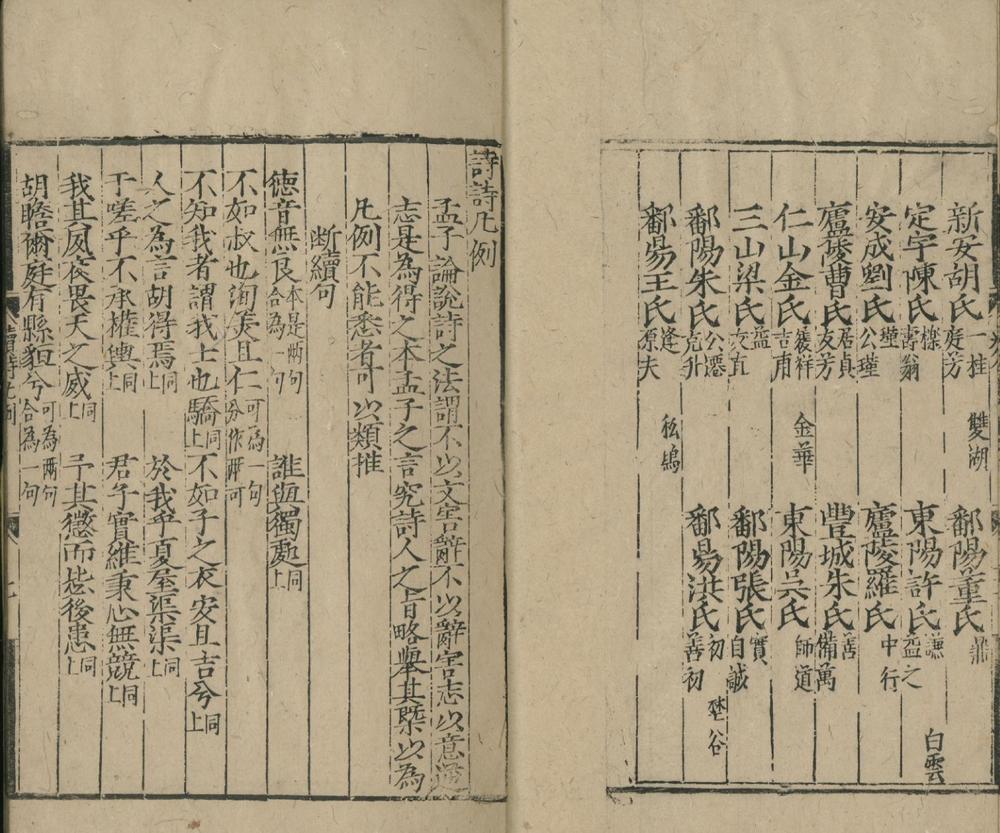 新安胡氏一桂庭芳 雙湖 鄱陽董氏鼎
定宇陳氏櫟壽翁 東陽許氏謙益之 白雲
安成劉氏瑾公瑾 廬陵羅氏中行
廬陵曹氏居貞友芳 豐城朱氏善備萬
仁山金氏履祥吉甫 金華 東陽吳氏師道
三山梁氏益友直 鄱陽張氏實自誠
鄱陽朱氏公遷克升 鄱昜洪氏初善初 埜谷
鄱昜王氏逢原夫 松塢
詩詩凡例
孟子論說詩之法謂不以文害辭不以辭害志以意逆
志是為得之本孟子之言究詩人之旨略舉其槩以為
凡例不能悉者可以類推
断續句
德音無良本是兩句合為一句 誰與獨處同上
不如叔也洵美且仁可為一句分作兩句可
不知我者謂我士也驕同上 不如子之衣安且吉兮同上
人之為言胡得焉同上 於我乎夏屋渠渠同上
于嗟乎不承權輿同上 君子實維秉心無競同上
我其夙夜畏天之威同上 予其懲而毖後患同上
胡瞻爾庭有縣貆兮可為兩句合為一句